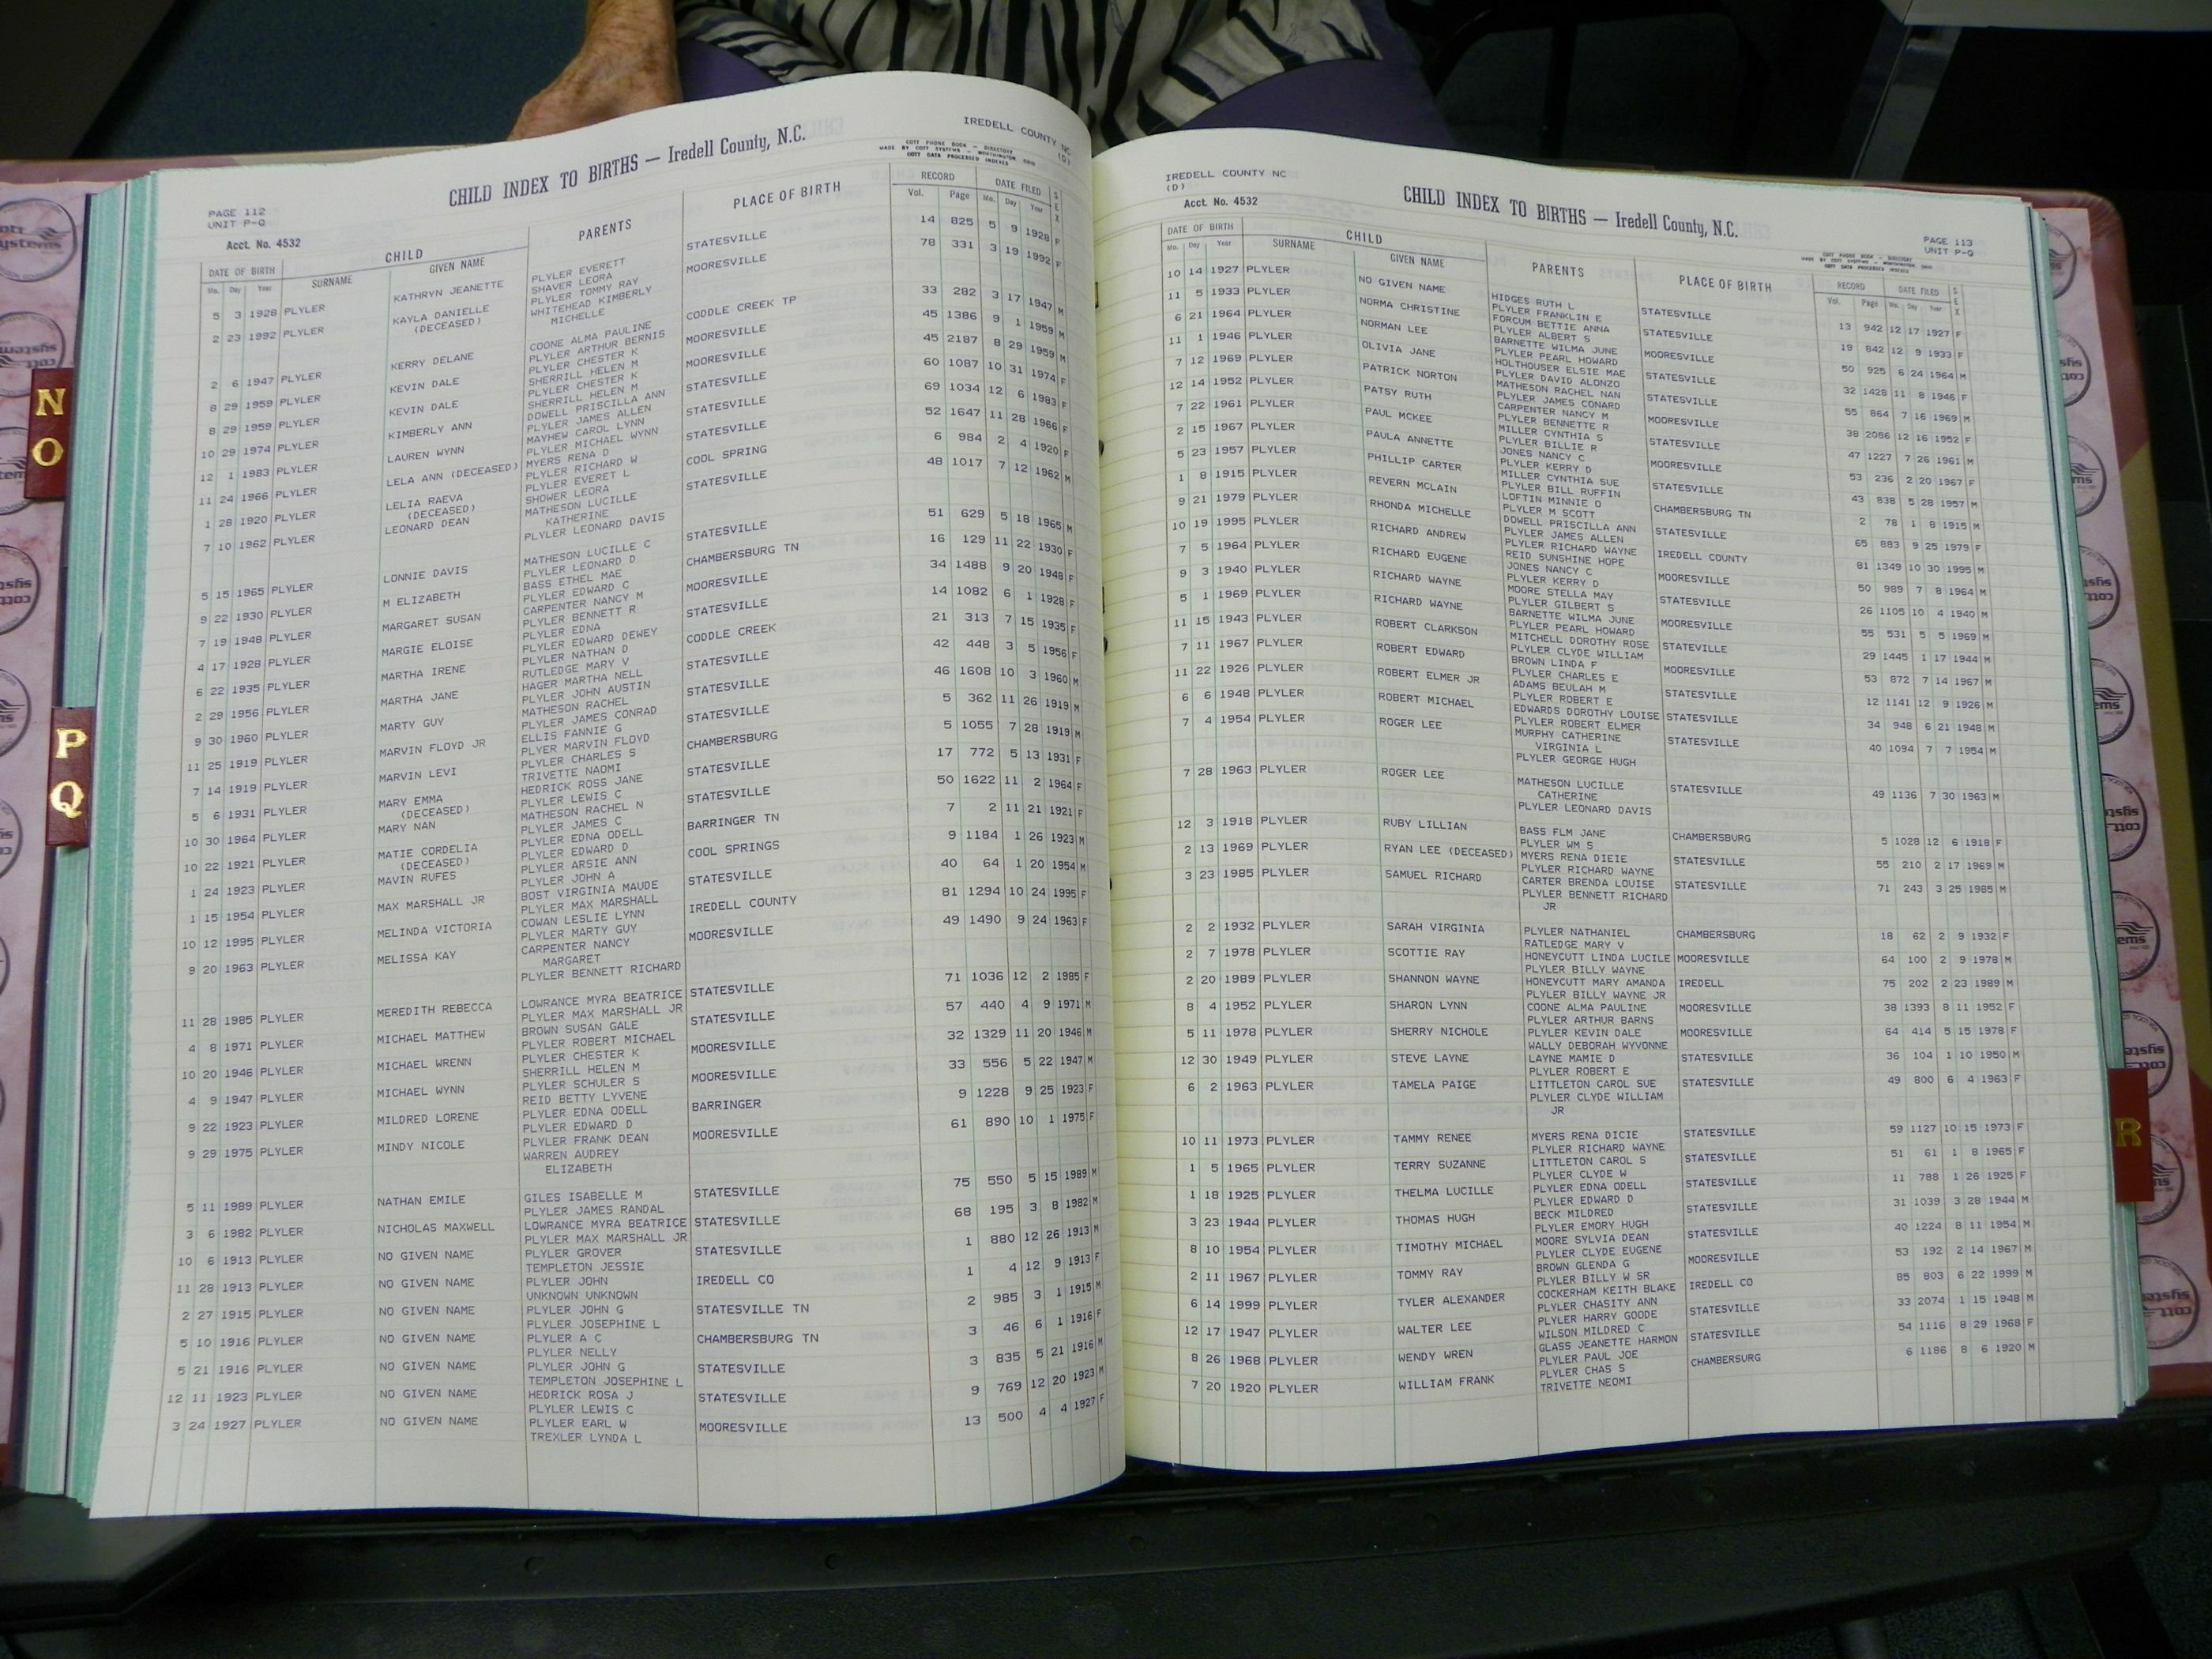 IREDELL COUNTY NC
(D)
CHILD INDEX TO BIRTHS — Iredell County, N.C.
COTT PHONE BOOK - DIRECTORY
MADE BY COTT SYSTEMS - WORTHINGTON, OHIO
COTT DATA PROCESSED INDEXES
PAGE 112
UNIT P-Q
Acct. No. 4532
DATE OF BIRTH CHILD PARENTS PLACE OF BIRTH RECORD DATE FILED SEX
Mo. Day Year SURNAME GIVEN NAME Vol. Page Mo. Day Year
5 3 1928 PLYLER KATHRYN JEANETTE PLYLER EVERETT STATESVILLE 14 825 5 9 1928 F
SHAVER LEORA
2 23 1992 PLYLER KAYLA DANIELLE PLYLER TOMMY RAY MOORESVILLE 78 331 3 19 1992 F
(DECEASED) WHITEHEAD KIMBERLY
MICHELLE
2 6 1947 PLYLER KERRY DELANE COONE ALMA PAULINE CODDLE CREEK TP 33 282 3 17 1947 M
PLYLER ARTHUR BERNIS
8 29 1959 PLYLER KEVIN DALE PLYLER CHESTER K MOORESVILLE 45 1386 9 1 1959 M
SHERRILL HELEN M
8 29 1959 PLYLER KEVIN DALE PLYLER CHESTER K MOORESVILLE 45 2187 8 29 1959 M
SHERRILL HELEN M
10 29 1974 PLYLER KIMBERLY ANN DOWELL PRISCILLA ANN STATESVILLE 60 1087 10 31 1974 F
PLYLER JAMES ALLEN
12 1 1983 PLYLER LAUREN WYNN MAYHEW CAROL LYNN STATESVILLE 69 1034 12 6 1983 F
PLYLER MICHAEL WYNN
11 24 1966 PLYLER LELA ANN (DECEASED) MYERS RENA D STATESVILLE 52 1647 11 28 1966 F
PLYLER RICHARD W
1 28 1920 PLYLER LELIA RAEVA PLYLER EVERET L COOL SPRING 6 984 2 4 1920 F
(DECEASED) SHOWER LEORA
7 10 1962 PLYLER LEONARD DEAN MATHESON LUCILLE STATESVILLE 48 1017 7 12 1962 M
KATHERINE
PLYLER LEONARD DAVIS
5 15 1965 PLYLER LONNIE DAVIS MATHESON LUCILLE C STATESVILLE 51 629 5 18 1965 M
PLYLER LEONARD D
9 22 1930 PLYLER M ELIZABETH BASS ETHEL MAE CHAMBERSBURG TN 16 129 11 22 1930 F
PLYLER EDWARD C
7 19 1948 PLYLER MARGARET SUSAN CARPENTER NANCY M MOORESVILLE 34 1488 9 20 1948 F
PLYLER BENNETT R
4 17 1928 PLYLER MARGIE ELOISE PLYLER EDNA STATESVILLE 14 1082 6 1 1928 F
PLYLER EDWARD DEWEY
6 22 1935 PLYLER MARTHA IRENE PLYLER NATHAN D CODDLE CREEK 21 313 7 15 1935 F
RUTLEDGE MARY V
2 29 1956 PLYLER MARTHA JANE HAGER MARTHA NELL STATESVILLE 42 448 3 5 1956 F
PLYLER JOHN AUSTIN
9 30 1960 PLYLER MARTY GUY MATHESON RACHEL STATESVILLE 46 1608 10 3 1960 M
PLYLER JAMES CONRAD
11 25 1919 PLYLER MARVIN FLOYD JR ELLIS FANNIE G STATESVILLE 5 362 11 26 1919 M
PLYER MARVIN FLOYD
7 14 1919 PLYLER MARVIN LEVI PLYLER CHARLES S CHAMBERSBURG 5 1055 7 28 1919 M
TRIVETTE NAOMI
5 6 1931 PLYLER MARY EMMA HEDRICK ROSS JANE STATESVILLE 17 772 5 13 1931 F
(DECEASED) PLYLER LEWIS C
10 30 1964 PLYLER MARY NAN MATHESON RACHEL N STATESVILLE 50 1622 11 2 1964 F
PLYLER JAMES C
10 22 1921 PLYLER MATIE CORDELIA PLYLER EDNA ODELL BARRINGER TN 7 2 11 21 1921 F
(DECEASED) PLYLER EDWARD D
1 24 1923 PLYLER MAVIN RUFES PLYLER ARSIE ANN COOL SPRINGS 9 1184 1 26 1923 M
PLYLER JOHN A
1 15 1954 PLYLER MAX MARSHALL JR BOST VIRGINIA MAUDE STATESVILLE 40 64 1 20 1954 M
PLYLER MAX MARSHALL
10 12 1995 PLYLER MELINDA VICTORIA COWAN LESLIE LYNN IREDELL COUNTY 81 1294 10 24 1995 F
PLYLER MARTY GUY
9 20 1963 PLYLER MELISSA KAY CARPENTER NANCY MOORESVILLE 49 1490 9 24 1963 F
MARGARET
PLYLER BENNETT RICHARD
11 28 1985 PLYLER MEREDITH REBECCA LOWRANCE MYRA BEATRICE STATESVILLE 71 1036 12 2 1985 F
PLYLER MAX MARSHALL JR
4 8 1971 PLYLER MICHAEL MATTHEW BROWN SUSAN GALE STATESVILLE 57 440 4 9 1971 M
PLYLER ROBERT MICHAEL
10 20 1946 PLYLER MICHAEL WRENN PLYLER CHESTER K MOORESVILLE 32 1329 11 20 1946 M
SHERRILL HELEN M
4 9 1947 PLYLER MICHAEL WYNN PLYLER SCHULER S MOORESVILLE 33 556 5 22 1947 M
REID BETTY LYVENE
9 22 1923 PLYLER MILDRED LORENE PLYLER EDNA ODELL BARRINGER 9 1228 9 25 1923 F
PLYLER EDWARD D
9 29 1975 PLYLER MINDY NICOLE PLYLER FRANK DEAN MOORESVILLE 61 890 10 1 1975 F
WARREN AUDREY
ELIZABETH
5 11 1989 PLYLER NATHAN EMILE GILES ISABELLE M STATESVILLE 75 550 5 15 1989 M
PLYLER JAMES RANDAL
3 6 1982 PLYLER NICHOLAS MAXWELL LOWRANCE MYRA BEATRICE STATESVILLE 68 195 3 8 1982 M
PLYLER MAX MARSHALL JR
10 6 1913 PLYLER NO GIVEN NAME PLYLER GROVER STATESVILLE 1 880 12 26 1913 M
TEMPLETON JESSIE
11 28 1913 PLYLER NO GIVEN NAME PLYLER JOHN IREDELL CO 1 4 12 9 1913 F
UNKNOWN UNKNOWN
2 27 1915 PLYLER NO GIVEN NAME PLYLER JOHN G STATESVILLE TN 2 985 3 1 1915 M
PLYLER JOSEPHINE L
5 10 1916 PLYLER NO GIVEN NAME PLYLER A C CHAMBERSBURG TN 3 46 6 1 1916 F
PLYLER NELLY
5 21 1916 PLYLER NO GIVEN NAME PLYLER JOHN G STATESVILLE 3 835 5 21 1916 M
TEMPLETON JOSEPHINE L
12 11 1923 PLYLER NO GIVEN NAME HEDRICK ROSA J STATESVILLE 9 769 12 20 1923 M
PLYLER LEWIS C
3 24 1927 PLYLER NO GIVEN NAME PLYLER EARL W MOORESVILLE 13 500 4 4 1927 F
TREXLER LYNDA L
IREDELL COUNTY NC
(D)
Acct. No. 4532
CHILD INDEX TO BIRTHS — Iredell County, N.C.
PAGE 113
UNIT P-Q
COTT PHONE BOOK - DIRECTORY
MADE BY COTT SYSTEMS - WORTHINGTON, OHIO
COTT DATA PROCESSED INDEXES
DATE OF BIRTH CHILD PARENTS PLACE OF BIRTH RECORD DATE FILED SEX
Mo. Day Year SURNAME GIVEN NAME Vol. Page Mo. Day Year
10 14 1927 PLYLER NO GIVEN NAME HIDGES RUTH L STATESVILLE 13 942 12 17 1927 F
PLYLER FRANKLIN E
11 5 1933 PLYLER NORMA CHRISTINE FORCUM BETTIE ANNA STATESVILLE 19 842 12 9 1933 F
PLYLER ALBERT S
6 21 1964 PLYLER NORMAN LEE BARNETTE WILMA JUNE MOORESVILLE 50 925 6 24 1964 M
PLYLER PEARL HOWARD
11 1 1946 PLYLER OLIVIA JANE HOLTHOUSER ELSIE MAE STATESVILLE 32 1428 11 8 1946 F
PLYLER DAVID ALONZO
7 12 1969 PLYLER PATRICK NORTON MATHESON RACHEL NAN STATESVILLE 55 864 7 16 1969 M
PLYLER JAMES CONARD
12 14 1952 PLYLER PATSY RUTH CARPENTER NANCY M MOORESVILLE 38 2086 12 16 1952 F
PLYLER BENNETTE R
7 22 1961 PLYLER PAUL MCKEE MILLER CYNTHIA S STATESVILLE 47 1227 7 26 1961 M
PLYLER BILLIE R
2 15 1967 PLYLER PAULA ANNETTE JONES NANCY C MOORESVILLE 53 236 2 20 1967 F
PLYLER KERRY D
5 23 1957 PLYLER PHILLIP CARTER MILLER CYNTHIA SUE STATESVILLE 43 838 5 28 1957 M
PLYLER BILL RUFFIN
1 8 1915 PLYLER REVERN MCLAIN LOFTIN MINNIE O CHAMBERSBURG TN 2 78 1 8 1915 M
PLYLER M SCOTT
9 21 1979 PLYLER RHONDA MICHELLE DOWELL PRISCILLA ANN STATESVILLE 65 883 9 25 1979 F
PLYLER JAMES ALLEN
10 19 1995 PLYLER RICHARD ANDREW PLYLER RICHARD WAYNE IREDELL COUNTY 81 1349 10 30 1995 M
REID SUNSHINE HOPE
7 5 1964 PLYLER RICHARD EUGENE JONES NANCY C MOORESVILLE 50 989 7 8 1964 M
PLYLER KERRY D
9 3 1940 PLYLER RICHARD WAYNE MOORE STELLA MAY STATESVILLE 26 1105 10 4 1940 M
PLYLER GILBERT S
5 1 1969 PLYLER RICHARD WAYNE BARNETTE WILMA JUNE MOORESVILLE 55 531 5 5 1969 M
PLYLER PEARL HOWARD
11 15 1943 PLYLER ROBERT CLARKSON MITCHELL DOROTHY ROSE STATEVILLE 29 1445 1 17 1944 M
PLYLER CLYDE WILLIAM
7 11 1967 PLYLER ROBERT EDWARD BROWN LINDA F MOORESVILLE 53 872 7 14 1967 M
PLYLER CHARLES E
11 22 1926 PLYLER ROBERT ELMER JR ADAMS BEULAH M STATESVILLE 12 1141 12 9 1926 M
PLYLER ROBERT E
6 6 1948 PLYLER ROBERT MICHAEL EDWARDS DOROTHY LOUISE STATESVILLE 34 948 6 21 1948 M
PLYLER ROBERT ELMER
7 4 1954 PLYLER ROGER LEE MURPHY CATHERINE STATESVILLE 40 1094 7 7 1954 M
VIRGINIA L
PLYLER GEORGE HUGH
7 28 1963 PLYLER ROGER LEE MATHESON LUCILLE STATESVILLE 49 1136 7 30 1963 M
CATHERINE
PLYLER LEONARD DAVIS
12 3 1918 PLYLER RUBY LILLIAN BASS FLM JANE CHAMBERSBURG 5 1028 12 6 1918 F
PLYLER WM S
2 13 1969 PLYLER RYAN LEE (DECEASED) MYERS RENA DIEIE STATESVILLE 55 210 2 17 1969 M
PLYLER RICHARD WAYNE
3 23 1985 PLYLER SAMUEL RICHARD CARTER BRENDA LOUISE STATESVILLE 71 243 3 25 1985 M
PLYLER BENNETT RICHARD
JR
2 2 1932 PLYLER SARAH VIRGINIA PLYLER NATHANIEL CHAMBERSBURG 18 62 2 9 1932 F
RATLEDGE MARY V
2 7 1978 PLYLER SCOTTIE RAY HONEYCUTT LINDA LUCILE MOORESVILLE 64 100 2 9 1978 M
PLYLER BILLY WAYNE
2 20 1989 PLYLER SHANNON WAYNE HONEYCUTT MARY AMANDA IREDELL 75 202 2 23 1989 M
PLYLER BILLY WAYNE JR
8 4 1952 PLYLER SHARON LYNN COONE ALMA PAULINE MOORESVILLE 38 1393 8 11 1952 F
PLYLER ARTHUR BARNS
5 11 1978 PLYLER SHERRY NICHOLE PLYLER KEVIN DALE MOORESVILLE 64 414 5 15 1978 F
WALLY DEBORAH WYVONNE
12 30 1949 PLYLER STEVE LAYNE LAYNE MAMIE D STATESVILLE 36 104 1 10 1950 M
PLYLER ROBERT E
6 2 1963 PLYLER TAMELA PAIGE LITTLETON CAROL SUE STATESVILLE 49 800 6 4 1963 F
PLYLER CLYDE WILLIAM
JR
10 11 1973 PLYLER TAMMY RENEE MYERS RENA DICIE STATESVILLE 59 1127 10 15 1973 F
PLYLER RICHARD WAYNE
1 5 1965 PLYLER TERRY SUZANNE LITTLETON CAROL S STATESVILLE 51 61 1 8 1965 F
PLYLER CLYDE W
1 18 1925 PLYLER THELMA LUCILLE PLYLER EDNA ODELL STATESVILLE 11 788 1 26 1925 F
PLYLER EDWARD D
3 23 1944 PLYLER THOMAS HUGH BECK MILDRED STATESVILLE 31 1039 3 28 1944 M
PLYLER EMORY HUGH
8 10 1954 PLYLER TIMOTHY MICHAEL MOORE SYLVIA DEAN STATESVILLE 40 1224 8 11 1954 M
PLYLER CLYDE EUGENE
2 11 1967 PLYLER TOMMY RAY BROWN GLENDA G MOORESVILLE 53 192 2 14 1967 M
PLYLER BILLY W SR
6 14 1999 PLYLER TYLER ALEXANDER COCKERHAM KEITH BLAKE IREDELL CO 85 803 6 22 1999 M
PLYLER CHASITY ANN
12 17 1947 PLYLER WALTER LEE PLYLER HARRY GOODE STATESVILLE 33 2074 1 15 1948 M
WILSON MILDRED C
8 26 1968 PLYLER WENDY WREN GLASS JEANETTE HARMON STATESVILLE 54 1116 8 29 1968 F
PLYLER PAUL JOE
7 20 1920 PLYLER WILLIAM FRANK PLYLER CHAS S CHAMBERSURG 6 1186 8 6 1920 M
TRIVETTE NEOMI
N
O
P
Q
R